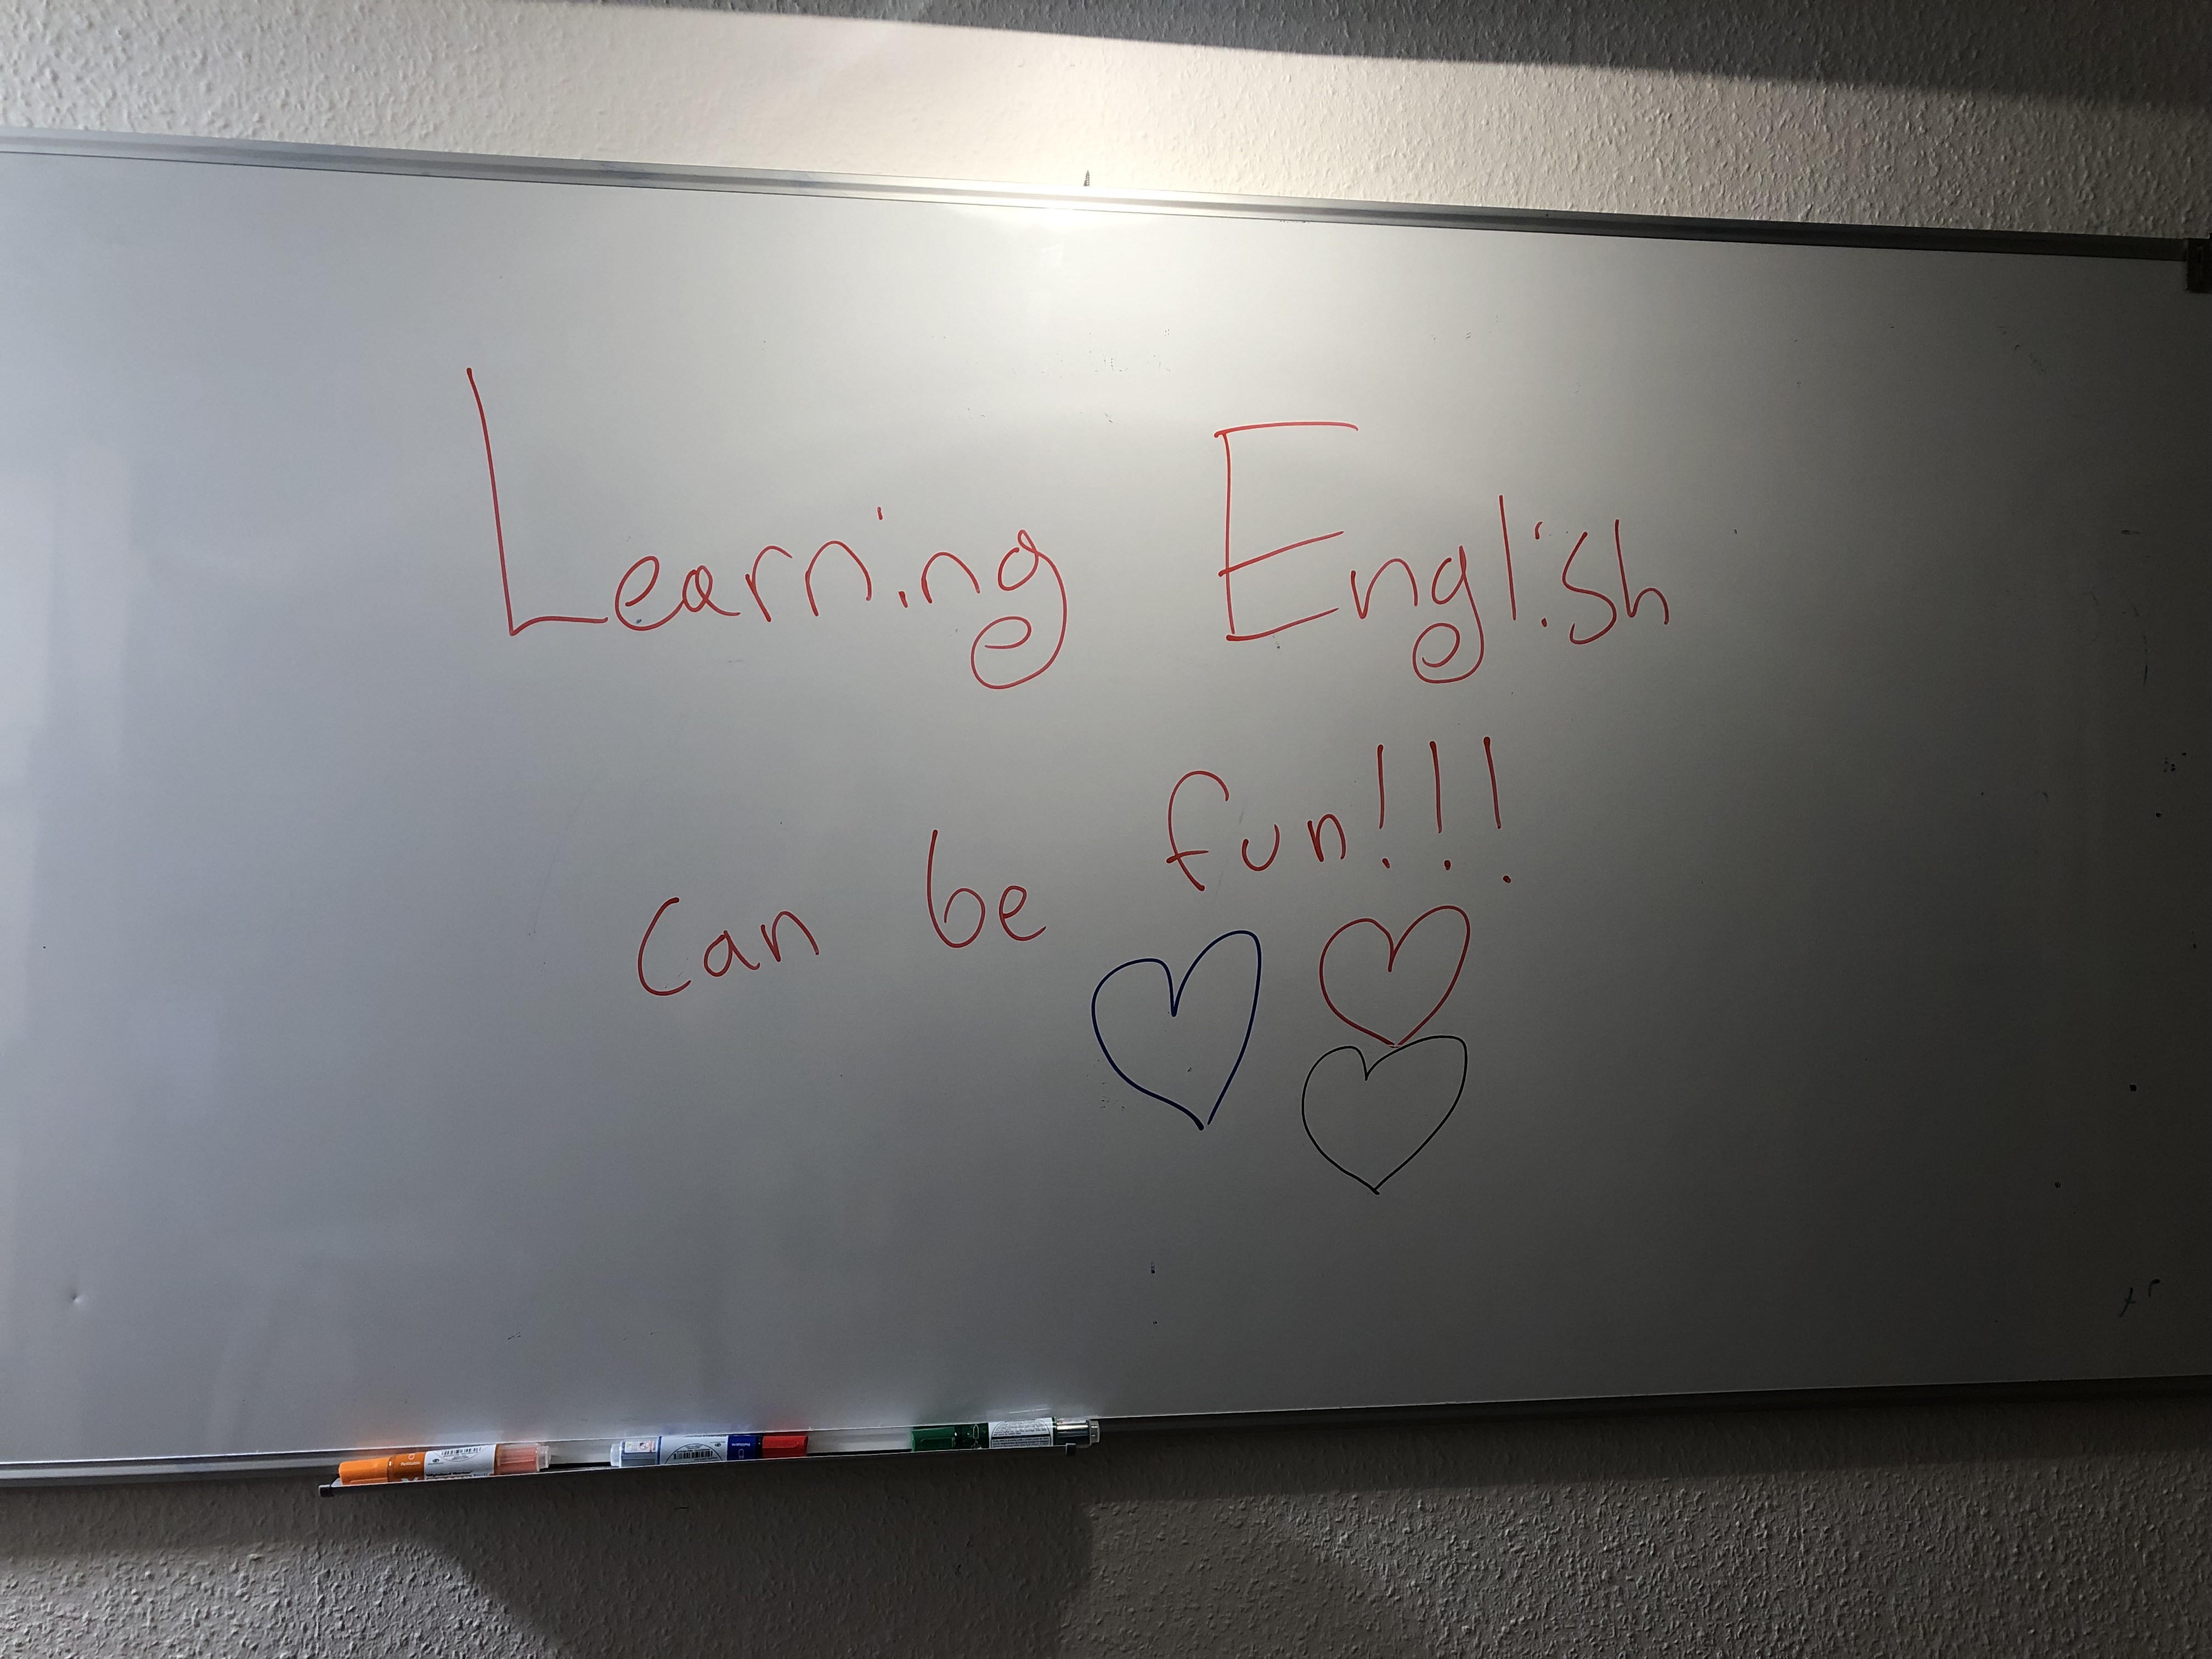 Learning English
can be fun!!!